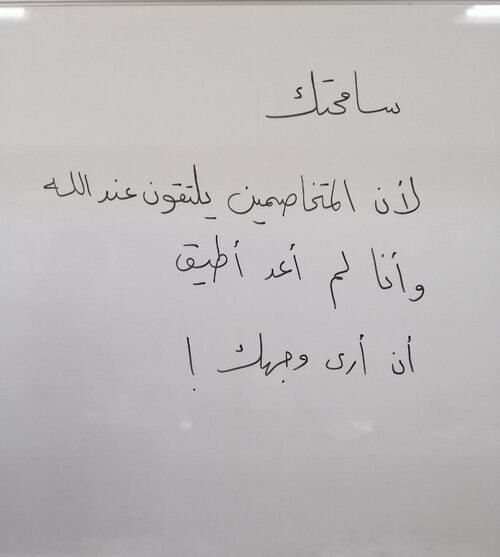 سامحتك
لأن المتخاصمين يلتقون عند الله
وأنا لم أعد أطيق
أن أرى وجهك !